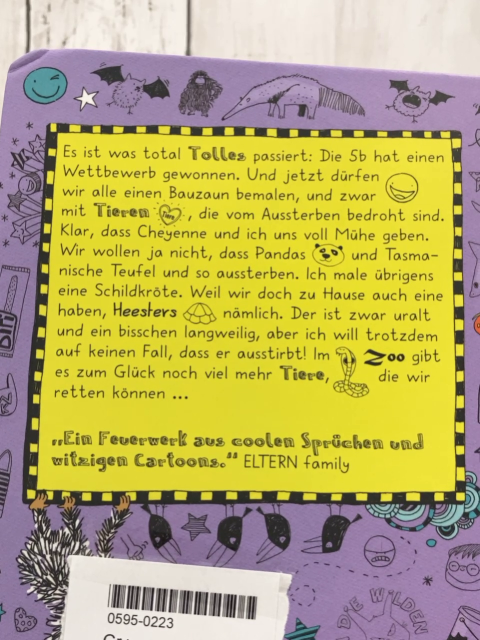 Es ist was total Tolles passiert: Die 5b hat einen
Wettbewerb gewonnen. Und jetzt dürfen
wir alle einen Bauzaun bemalen, und zwar
mit Tieren, die vom Aussterben bedroht sind.
Klar, dass Cheyenne und ich uns voll Mühe geben.
Wir wollen ja nicht, dass Pandas und Tasma-
nische Teufel und so aussterben. Ich male übrigens
eine Schildkröte. Weil wir doch zu Hause auch eine
haben, Heesters nämlich. Der ist zwar uralt
und ein bisschen langweilig, aber ich will trotzdem
auf keinen Fall, dass er ausstirbt! Im Zoo gibt
es zum Glück noch viel mehr Tiere, die wir
retten können ...
„Ein Feuerwerk aus coolen Sprüchen und
witzigen Cartoons.“ ELTERN family
0595-0223
DIE WILDEN